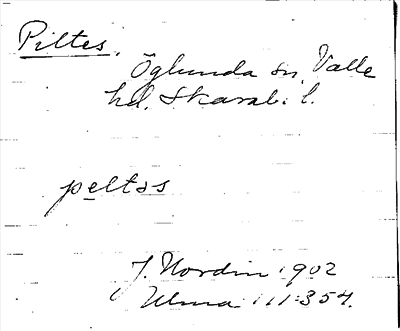 Piltes.
Öglunda sn, Valle
hd. Skarab. l.
peltɘs
J. Nordin 1902
Ulma 111:354.